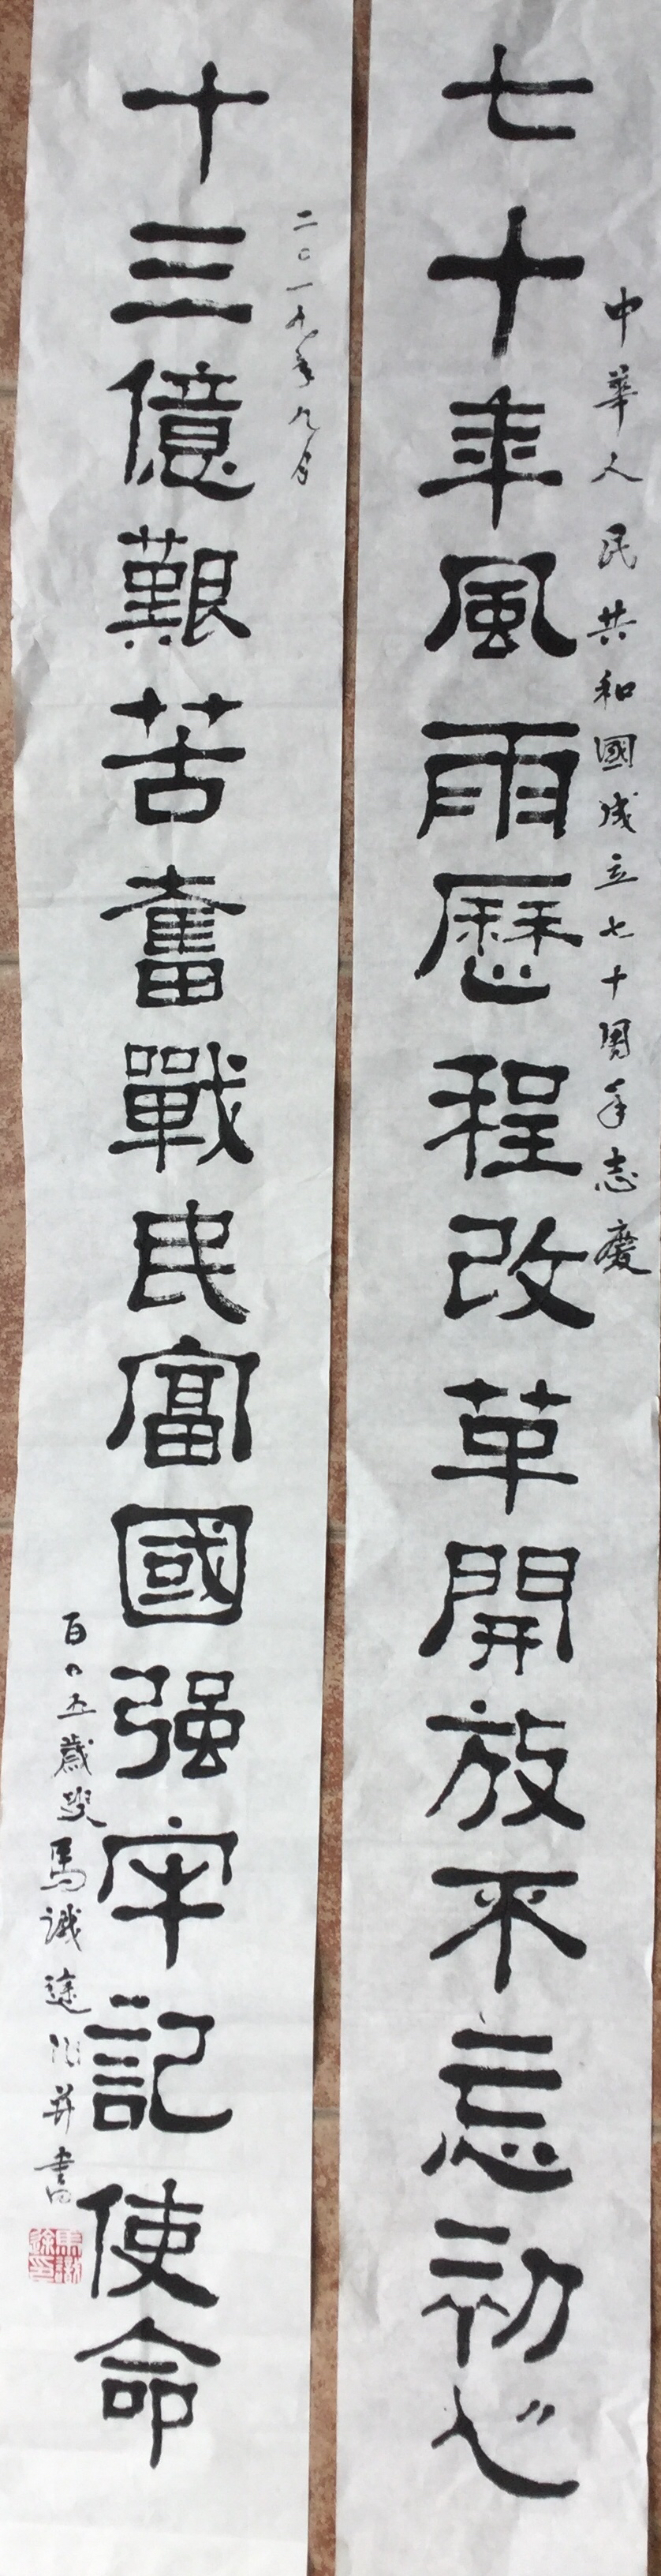 中華人民共和國成立七十周年志慶
七十年風雨歷程改革開放不忘初心
二〇一九年九月
十三億艱苦奮戰民富國强牢記使命
百〇五歲叟馬識途并書
馬識途印